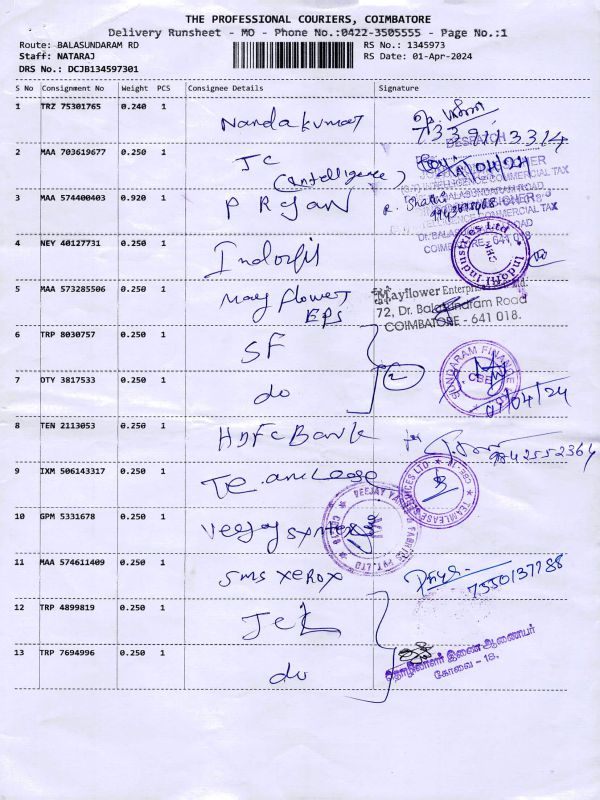 THE PROFESSIONAL COURIERS, COIMBATORE
Delivery Runsheet - MO - Phone No.:0422-3505555 - Page No.:1
Route: BALASUNDARAM RD
RS No.: 1345973
Staff: NATARAJ
RS Date: 01-Apr-2024
DRS No.: DCJB134597301
S No Consignment No Weight PCS Consignee Details Signature
1 TRZ 75301765 0.240 1 Nandakumar
7339113314
2 MAA 703619677 0.250 1 JC
(Intelligence)
3 MAA 574400403 0.920 1 P Rajan
4 NEY 40127731 0.250 1 Indofil
Indofil Industries Ltd
5 MAA 573285506 0.250 1 Mayflower
EPS
Mayflower Enterprises
72, Dr. Balasundaram Road
COIMBATORE - 641 018.
6 TRP 8030757 0.250 1 SF
2
SUNDARAM FINANCE
CBE
7 OTY 3817533 0.250 1 do
01/04/24
8 TEN 2113053 1 0.250 HDFC Bank
9842552364
9 IXM 506143317 0.250 1 TeamLease
TEAMLEASE SERVICES LTD
10 GPM 5331678 0.250 1 Veejay syntex
11 MAA 574611409 0.250 1 SMS Xerox
Priya
7550137788
12 TRP 4899819 0.250 1 JCL
13 TRP 7694996 0.250 1 do
தொழிலாளர் இணை ஆணையர்
கோவை - 18.